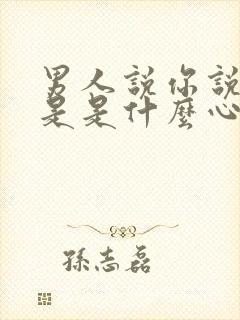 男人説你説
是是什麼心
孫志磊